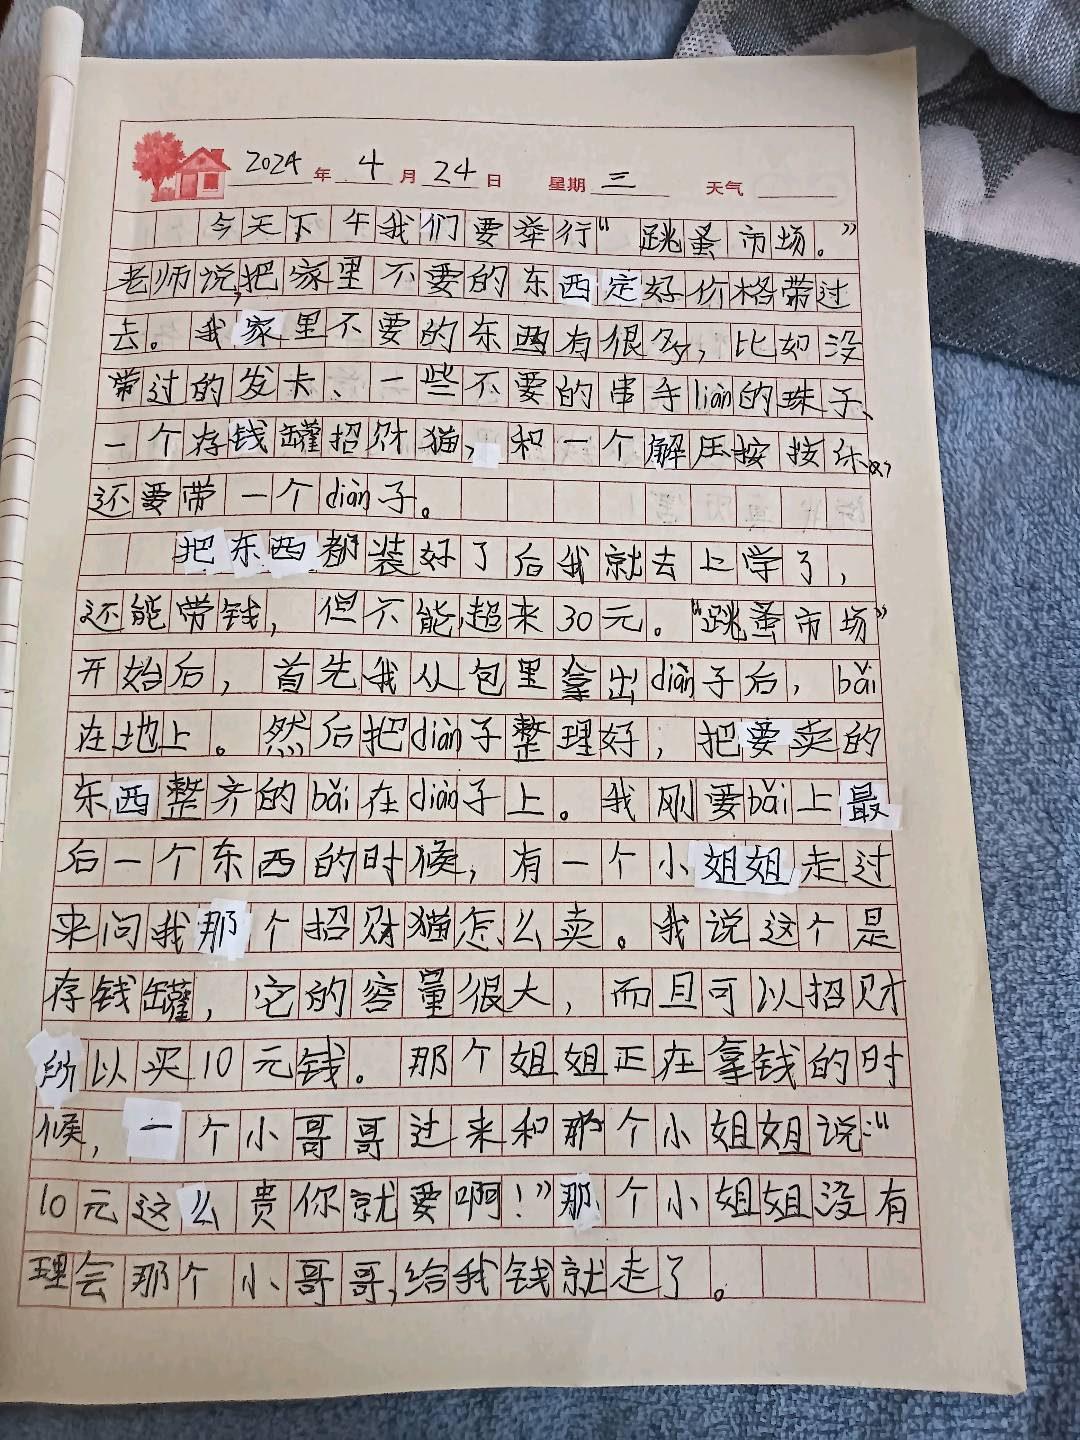 2024年 4月24日 星期三 天气
今天下午我们要举行“跳蚤市场。”
老师说,把家里不要的东西定好价格带过
去。我家里不要的东西有很多,比如没
带过的发卡、一些不要的串手liàn的珠子、
一个存钱罐招财猫,和一个解压按按乐,
还要带一个diàn子。
把东西都装好了后我就去上学了,
还能带钱,但不能超来30元。“跳蚤市场”
开始后,首先我从包里拿出diàn子后,bǎi
在地上。然后把diàn子整理好,把要卖的
东西整齐的bǎi在diàn子上。我刚要bǎi上最
后一个东西的时候,有一个小姐姐走过
来问我那个招财猫怎么卖。我说这个是
存钱罐,它的容量很大,而且可以招财
所以买10元钱。那个姐姐正在拿钱的时
候,一个小哥哥过来和那个小姐姐说:“
10元这么贵你就要啊!”那个小姐姐没有
理会那个小哥哥,给我钱就走了。